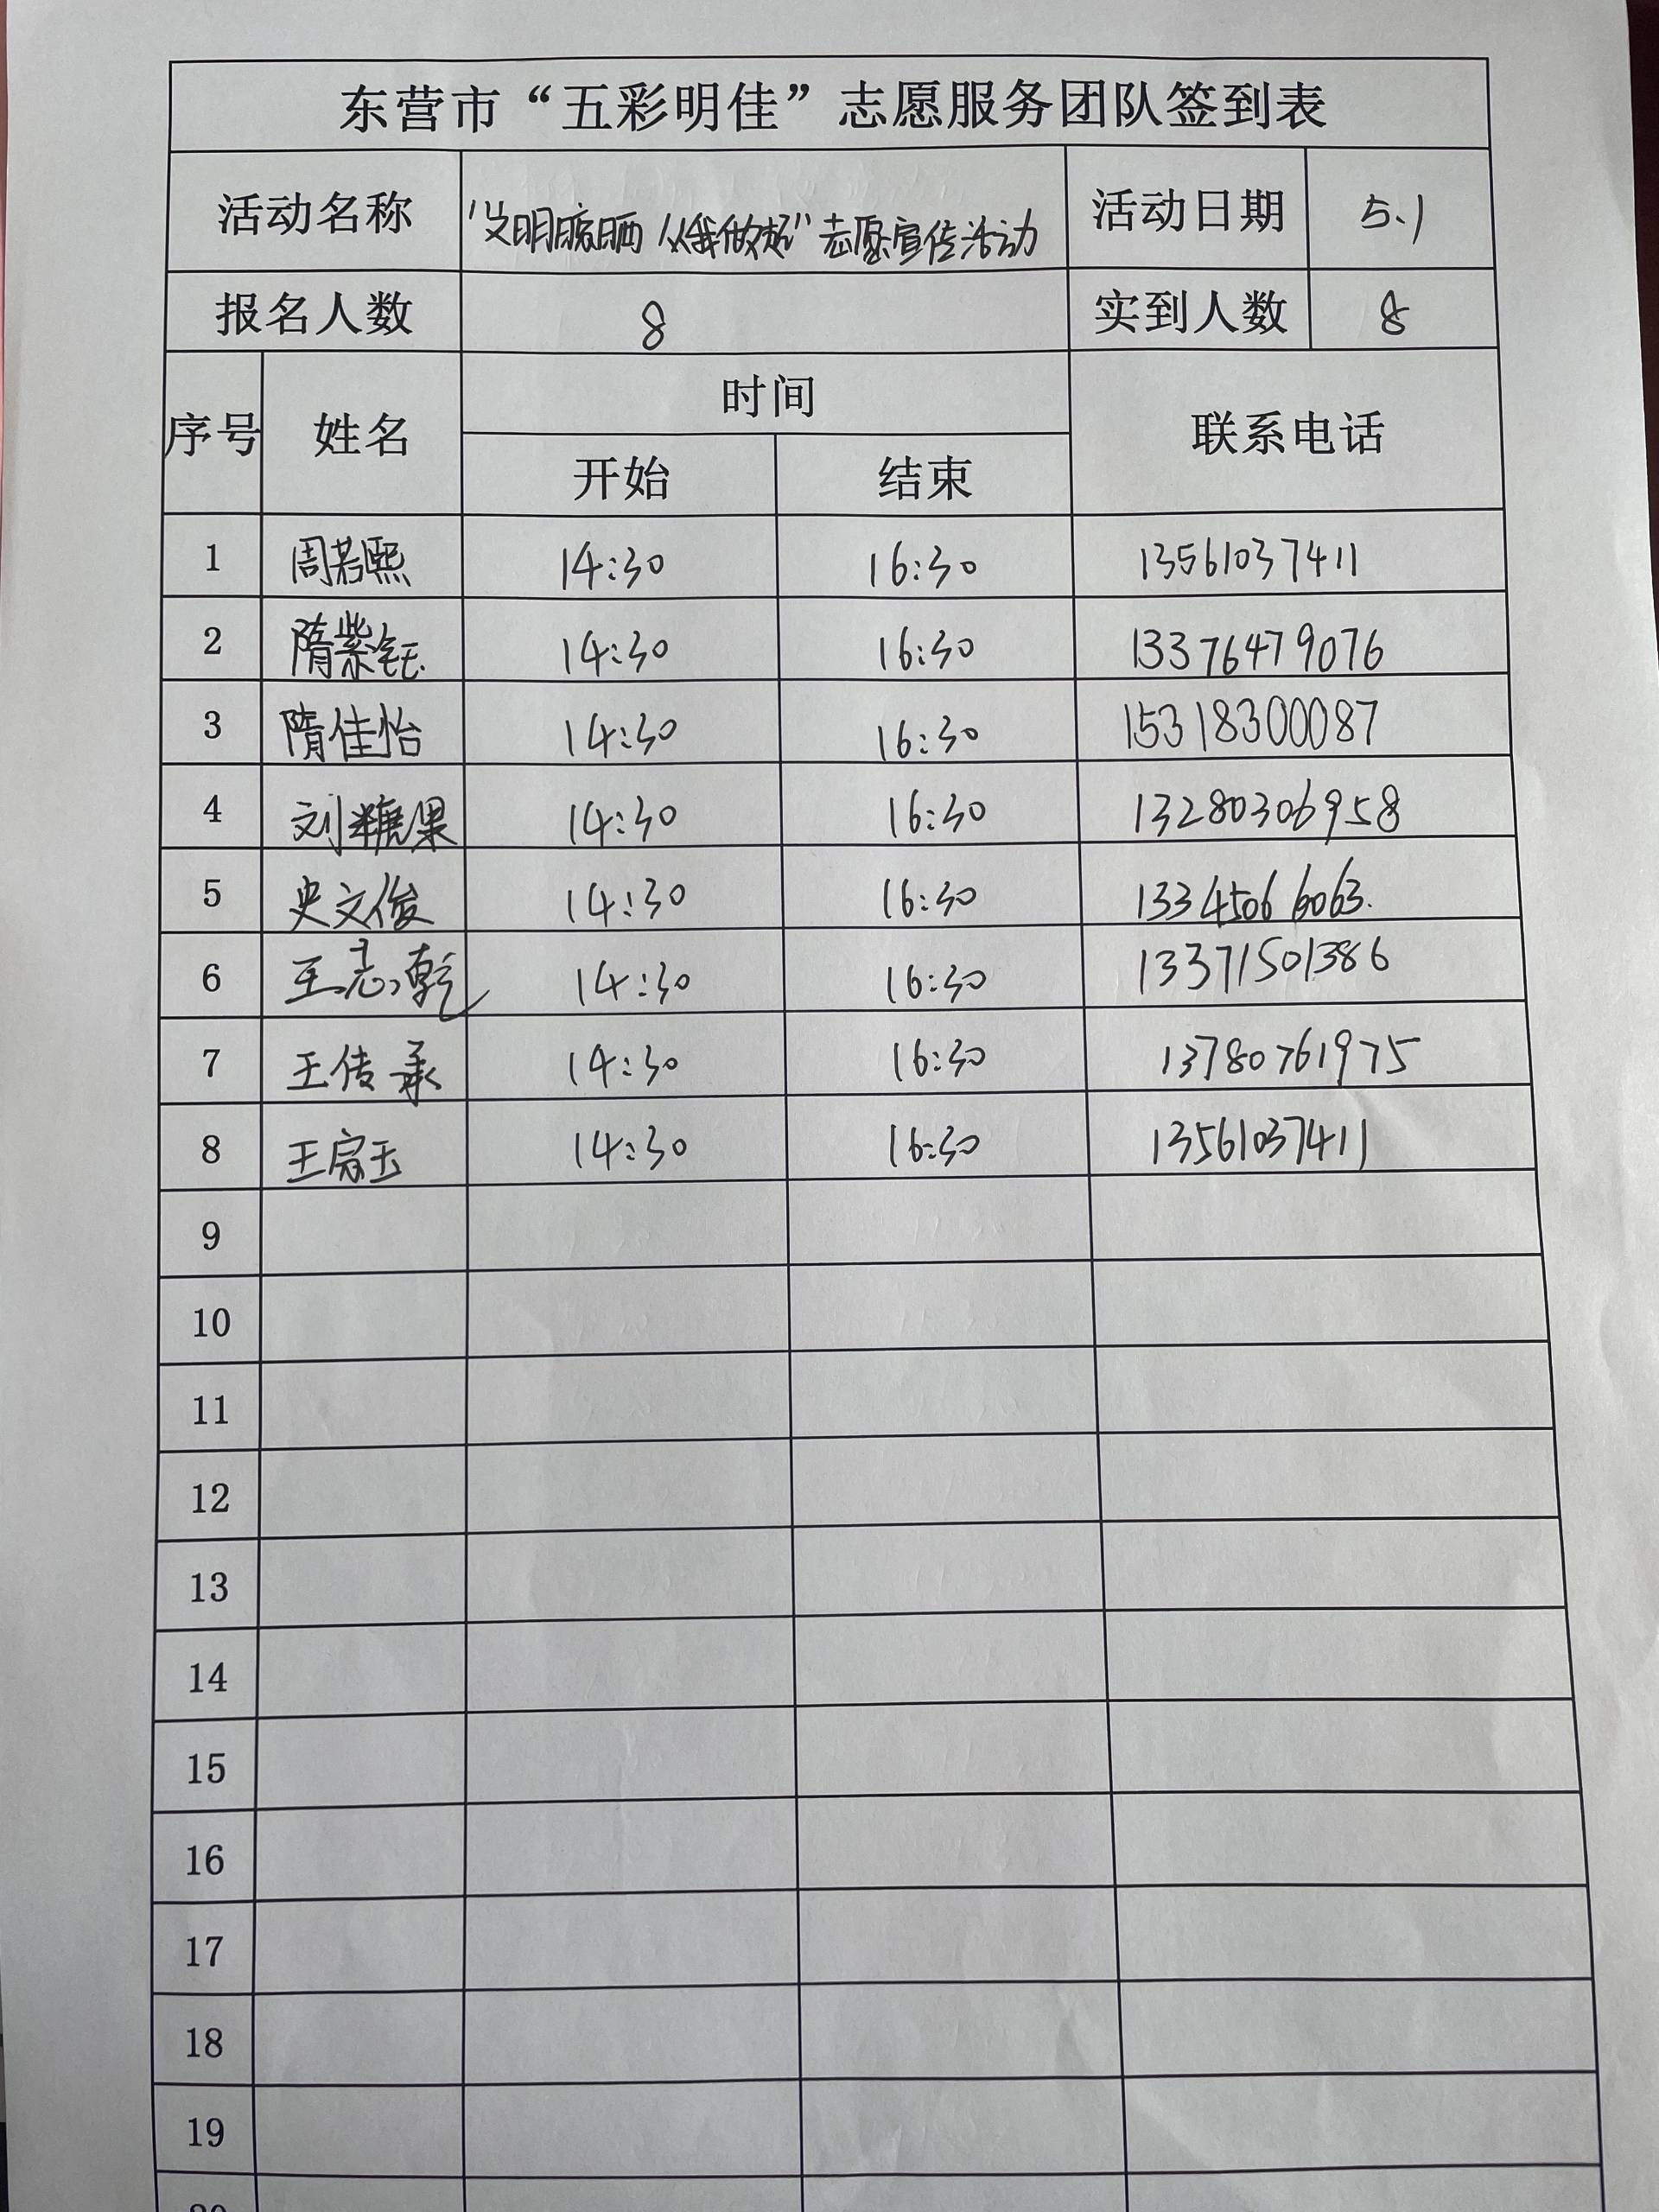 东营市“五彩明佳”志愿服务团队签到表
活动名称 “文明晾晒 从我做起”志愿宣传活动 活动日期 5.1
报名人数 8 实到人数 8
序号 姓名 时间 联系电话
开始 结束
1 周若熙 14:30 16:30 13561037411
2 隋紫钰 14:30 16:30 13376479076
3 隋佳怡 14:30 16:30 15318300087
4 刘糖果 14:30 16:30 13280306958
5 史文俊 14:30 16:30 13345066063.
6 王志乾 14:30 16:30 13371501386
7 王传承 14:30 16:30 13780761975
8 王 14:30 16:30 13561037411
9
10
11
12
13
14
15
16
17
18
19